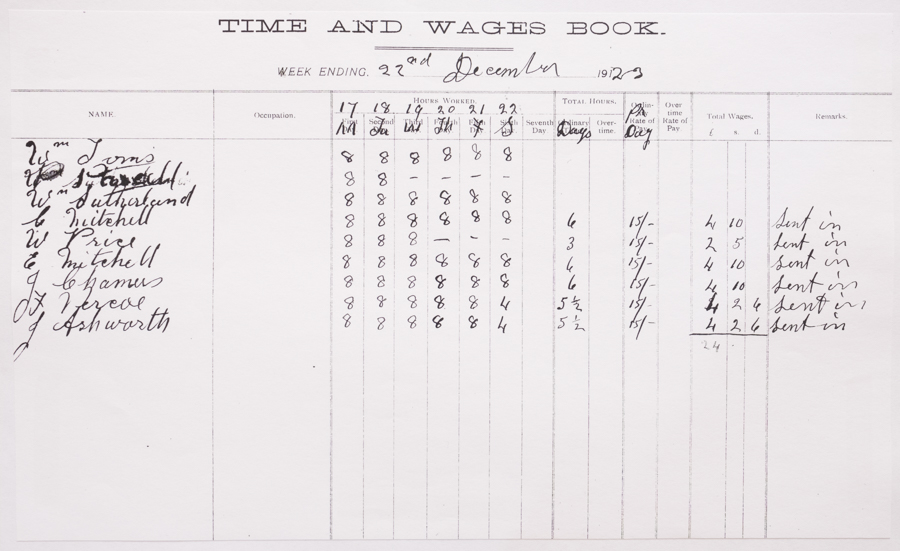 TIME AND WAGES BOOK.
WEEK ENDING. 22nd December 191223
NAME. Occupation. HOURS WORKED. TOTAL HOURS. Ordin- Rate of Over time Rate of Pay. Total Wages. Remarks.
17 18 19 20 21 22 Per
M Tu W Th F S Seventh Day Days Over- time. Day £ s. d.
Wm Toms 8 8 8 8 8 8
8 8 - - - -
Wm Sutherland 8 8 8 8 8 8
C Mitchell 8 8 8 8 8 8 6 15/- 4 10 Sent in
W Price 8 8 8 - - - 3 15/- 2 5 Sent in
E Mitchell 8 8 8 8 8 8 6 15/- 4 10 Sent in
J Chamers 8 8 8 8 8 8 6 15/- 4 10 Sent in
F Nercoe 8 8 8 8 8 4 5½ 15/- 4 2 6 Sent in
J Ashworth 8 8 8 8 8 4 5½ 15/- 4 2 6 Sent in
24 -